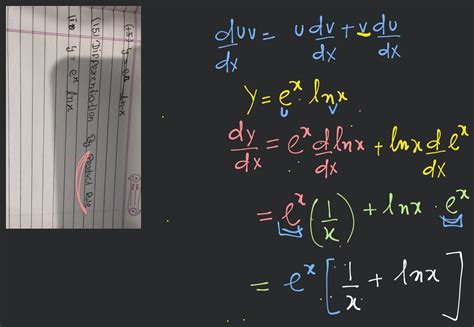 y = e^x lnx
(15) Differentiation By Product Rule
y = e^x lnx
duv/dx = u dv/dx + v du/dx
y = e^x · lnx
u v
dy/dx = e^x d lnx/dx + lnx d e^x/dx
= e^x (1/x) + lnx · e^x
= e^x [1/x + lnx]